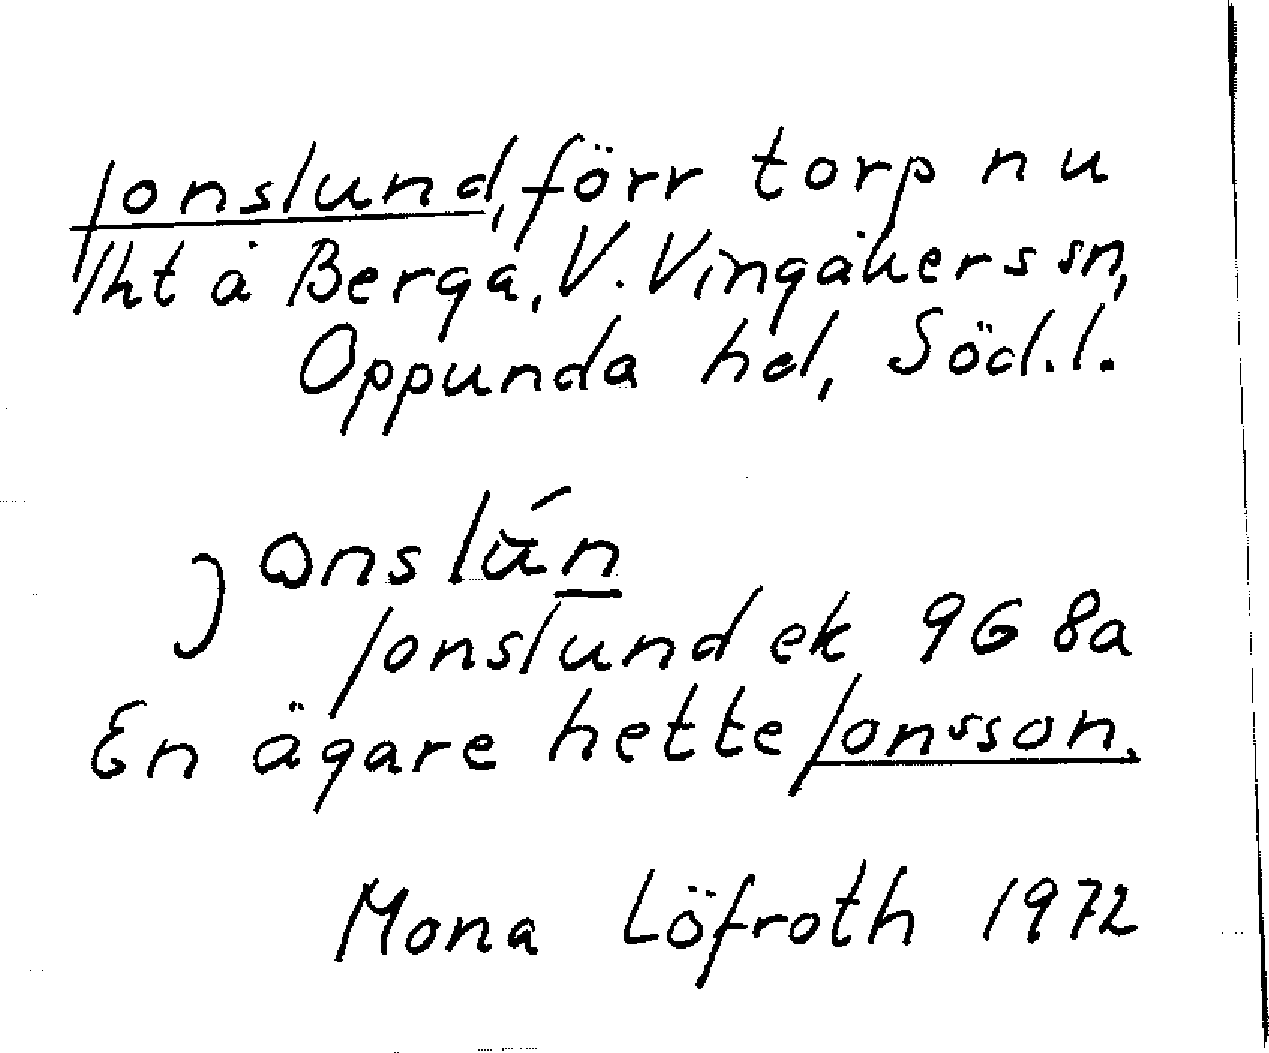 Jonslund, förr torp nu
lht å Berga, V. Vingåkers sn,
Oppunda hd, Söd.l.
Jonslund ek 9G 8a
En ägare hette Jonsson.
Mona Löfroth 1972